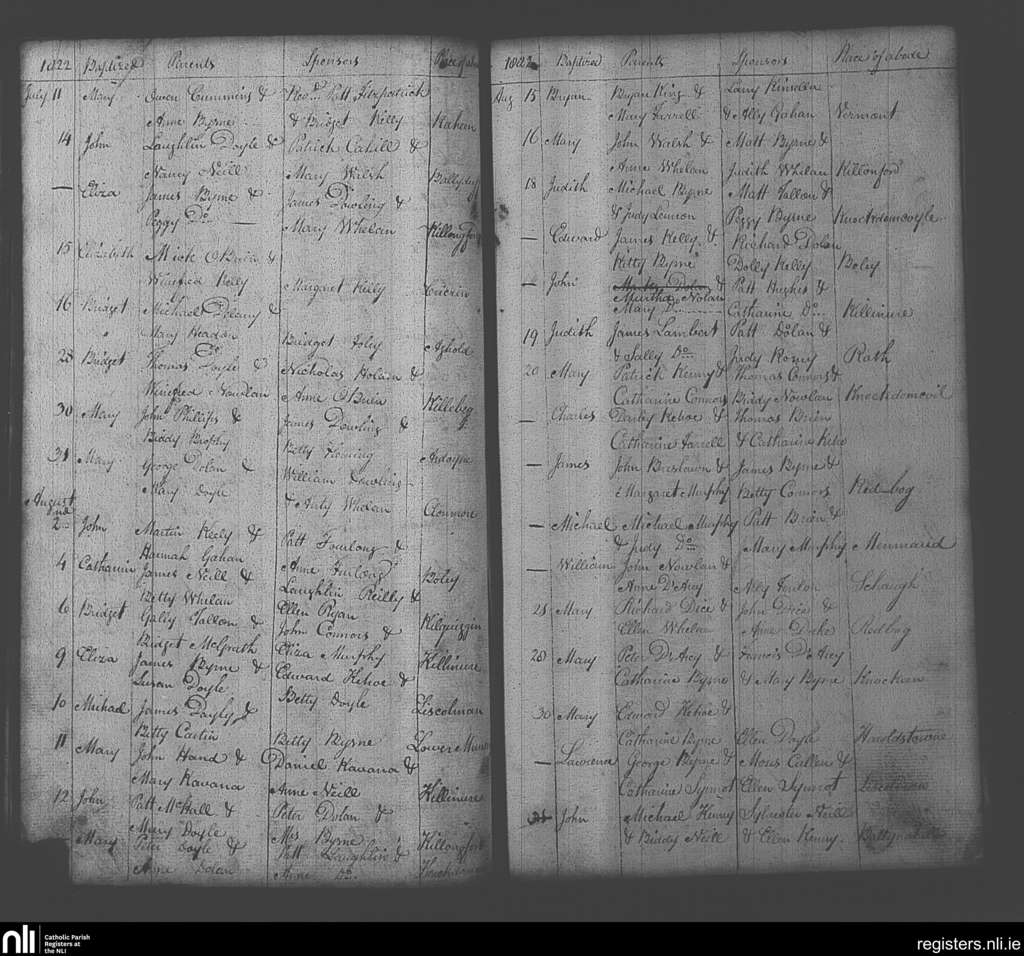 1822 Baptized Parents Sponsors Place of
July 11 Mary Owen Cummins & Revd. Patt Fitzpatrick
Anne Byrne & Bridget Kelly Rahem
14 John Laughlin Doyle & Patrick Cahill &
Nancy Neill Mary Walsh
— Eliza James Byrne & James Dowling &
Peggy Do. Mary Whelan
15 Elizabeth Mick O'Brien &
Winifred Kelly Margaret Kelly
16 Bridget Michael Delany &
Mary Headan Bridget Foley Aghold
28 Bridget Thomas Doyle & Nicholas Holden &
Winifred Nowlan Anne O'Brien Killebeg
30 Mary John Phillips & James Dowling &
Biddy Brophy Betty Fleming Ardoyne
31 Mary George Dolan & William Dowling
Mary Doyle & Anty Whelan Clonmore
August
2nd John Martin Keely & Patt Fourlong &
Hannah Gahan Anne Furlong Boley
4 Catharine James Neill & Laughlin Reilly &
Betty Whelan Ellen Ryan Kilquiggin
6 Bridget Fallon & John Connors &
Bridget McGrath Eliza Murphy Killinure
9 Eliza James Byrne & Edward Kehoe &
Susan Doyle Betty Doyle Liscolman
10 Michael James Dayly &
Betty Curtin Betty Byrne Lower
11 Mary John Hand & Daniel Kavana &
Mary Kavana Anne Neill Killinure
12 John Patt McHall & Peter Dolan &
Mary Doyle Mrs Byrne
Mary Peter Doyle & Patt Laughlin &
Anne Dolan Anne Do.
1822 Baptized Parents Sponsors Place of abode
Aug 15 Bryan Bryan King & Larry Kinsella
Mary Farrell & Ally Gahan Vermont
16 Mary John Walsh & Matt Byrne &
Anne Whelan Judith Whelan
18 Judith Michael Byrne Matt Fallon &
& Judy Lennon Peggy Byrne Knockdemcoyle
— Edward James Kelly & Richard Dolan
Kitty Byrne Dolly Kelly Boley
— John Patt Hughes &
Murtha Nolan
Mary Do. Catharine Do. Killinure
19 Judith James Lambert Patt Dolan &
& Sally Do. Judy Rath
20 Mary Patrick Kenny & Thomas Connors &
Catharine Connors Biddy Nowlan Knockdemcoil
— Charles Darby Kehoe & Thomas Brien
Catharine Farrell & Catharine Kehoe
— James John Breslawn & James Byrne &
Margaret Murphy Betty Connors Redbog
— Michael Michael Murphy Patt Brien &
& Judy Do. Mary Murphy Mennaird
— William John Nowlan &
Anne D'Arcy Ally Fenlon
25 Mary Richard Dice & John Dice &
Ellen Whelan Anne Redbog
28 Mary Peter D'Arcy & Francis D'Arcy
Catharine Byrne & Mary Byrne Knockeen
30 Mary Edward Kehoe &
Catharine Byrne Ellen Doyle Haroldstowne
— Lawrence George Byrne & Mous Cullen &
Catharine Synnot Ellen Synnot
31 John Michael Kenny Sylvester Neill
& Biddy Neill & Ellen Kenny.
nli Catholic Parish
Registers at
the NLI
registers.nli.ie